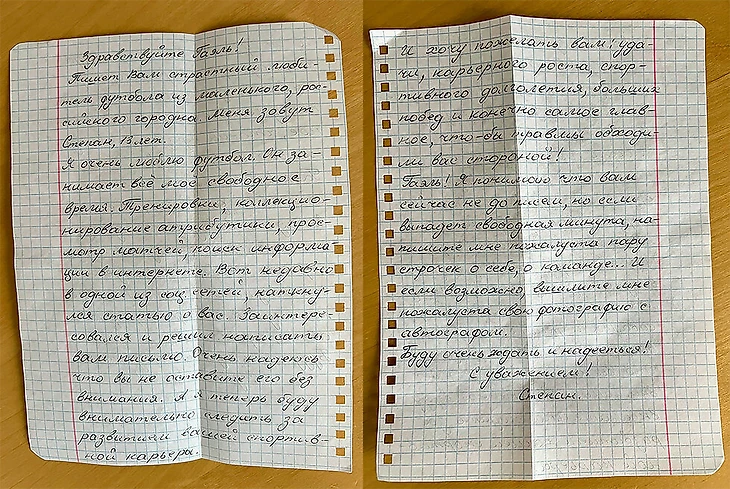 Здравствуйте Гаэль!
Пишет Вам страстный люби-
тель футбола из маленького, рос-
сийского городка. Меня зовут
Степан, 13 лет.
Я очень люблю футбол. Он за-
нимает всё моё свободное
время. Тренировки, коллекцио-
нирование атрибутики, прос-
мотр матчей, поиск информа-
ции в интернете. Вот недавно
в одной из соц. сетей, наткну-
лся статью о вас. Заинтере-
совался и решил написать
вам письмо. Очень надеюсь
что вы не оставите его без
внимания. А я теперь буду
внимательно следить за
развитием вашей спортив-
ной карьеры.
И хочу пожелать вам: уда-
чи, карьерного роста, спор-
тивного долголетия, больших
побед и конечно самое глав-
ное, что-бы травмы обходи-
ли вас стороной!
Гаэль! Я понимаю что вам
сейчас не до писем, но если
выпадет свободная минута, на-
пишите мне пожалуста пару
строчек о себе, о команде... И
если возможно, вышлите мне
пожалуста свою фотографию с
автографом.
Буду очень ждать и надеяться!
С уважением!
Степан.